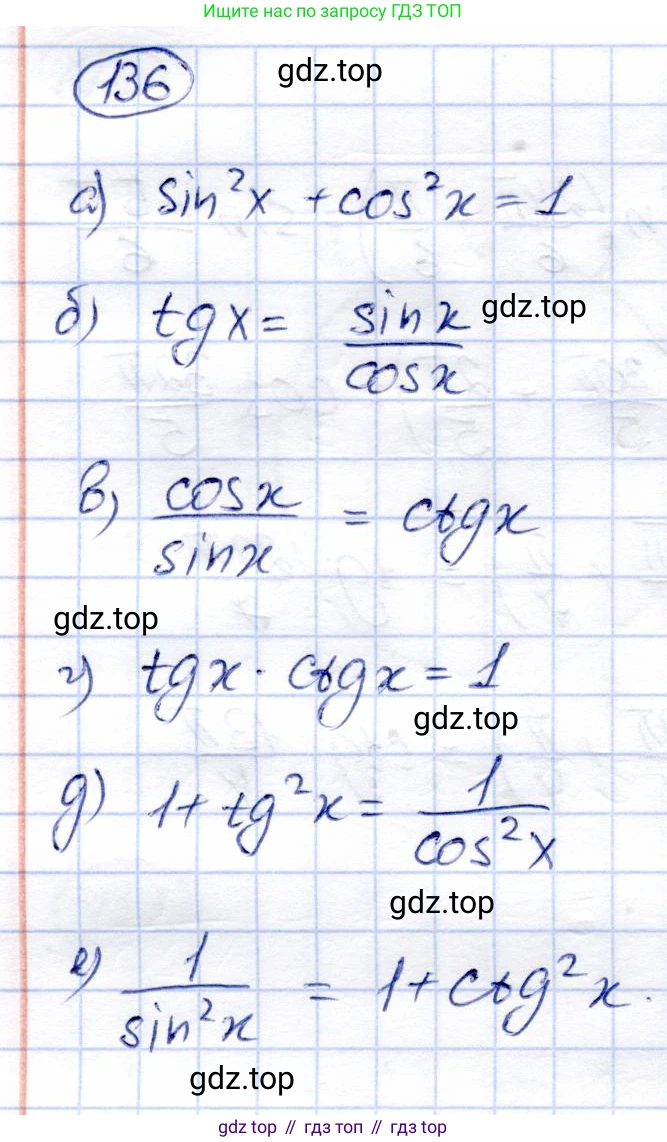 Ищите нас по запросу ГДЗ ТОП
136
gdz.top
а) sin²x + cos²x = 1
б) tg x = sin x / cos x
gdz.top
в) cos x / sin x = ctg x
gdz.top
г) tg x · ctg x = 1
gdz.top
д) 1 + tg²x = 1 / cos²x
gdz.top
е) 1 / sin²x = 1 + ctg²x.
gdz.top
gdz top // гдз топ // gdz top